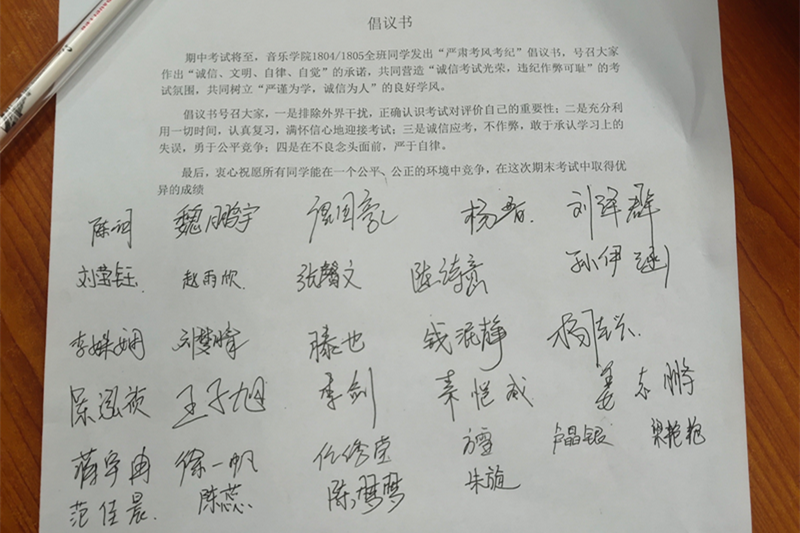 倡议书
期中考试将至，音乐学院1804/1805全班同学发出“严肃考风考纪”倡议书，号召大家
作出“诚信、文明、自律、自觉”的承诺，共同营造“诚信考试光荣，违纪作弊可耻”的考
试氛围，共同树立“严谨为学，诚信为人”的良好学风。
倡议书号召大家，一是排除外界干扰，正确认识考试对评价自己的重要性；二是充分利
用一切时间，认真复习，满怀信心地迎接考试；三是诚信应考，不作弊，敢于承认学习上的
失误，勇于公平竞争；四是在不良念头面前，严于自律。
最后，衷心祝愿所有同学能在一个公平、公正的环境中竞争，在这次期末考试中取得优
异的成绩
陈词 魏鹏宇 刘泽群
刘莹钰 赵雨欣 张馨文 孙伊涵
李姝娴 刘梦婷 滕也 钱泥静
陈泓硕 王子旭 李剑 秦恺威 姜东鹏
蒋宇冉 徐一帆 方雪 卢晶银 梁艳艳
范佳晨 陈蕊 陈梦梦 朱旋